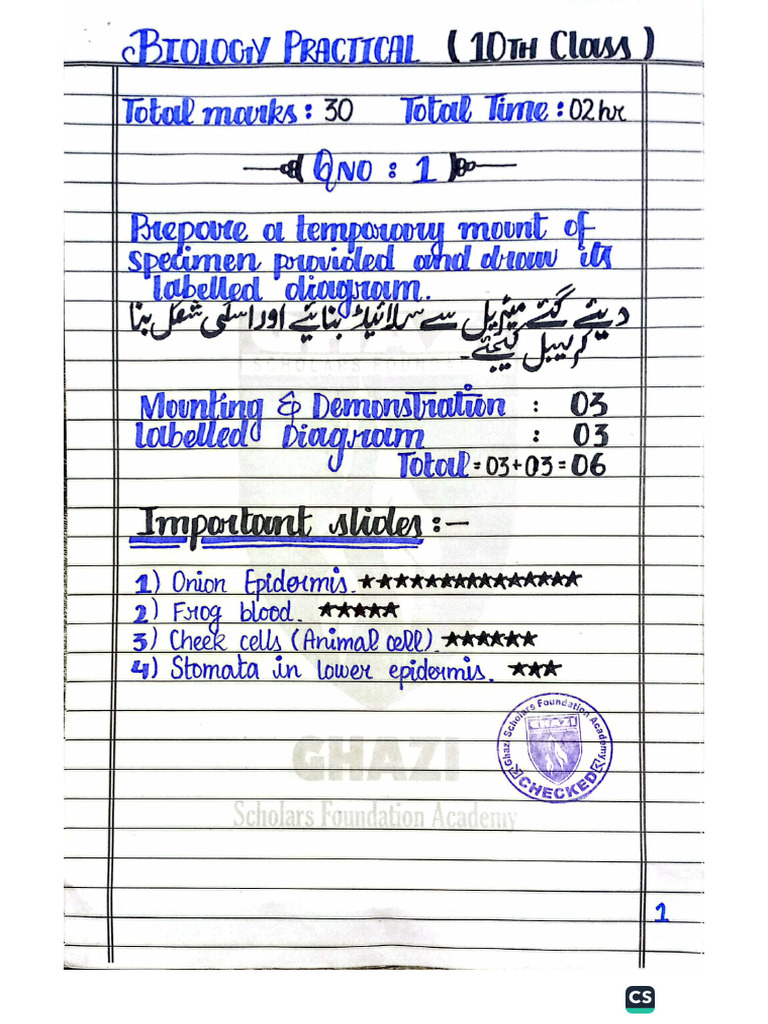 BIOLOGY PRACTICAL (10TH Class)
Total marks: 30 Total Time: 02hr
QNO : 1
Prepare a temporary mount of
specimen provided and draw its
labelled diagram.
دیئے گئے میٹریل سے سلائیڈ بنائیے اور اسکی شکل بنا
کر لیبل کیجئے۔
SCHOLARS FOUNDA
Mounting & Demonstration : 03
Labelled Diagram : 03
Total = 03+03 = 06
Important slides :-
1) Onion Epidermis. ★★★★★★★★★★★★★★
2) Frog blood. ★★★★★
3) Cheek cells (Animal cell). ★★★★★★
4) Stomata in lower epidermis. ★★★
Ghazi Scholars Foundation Academy
CHECKED
GHAZI
Scholars Foundation Academy
1
CS